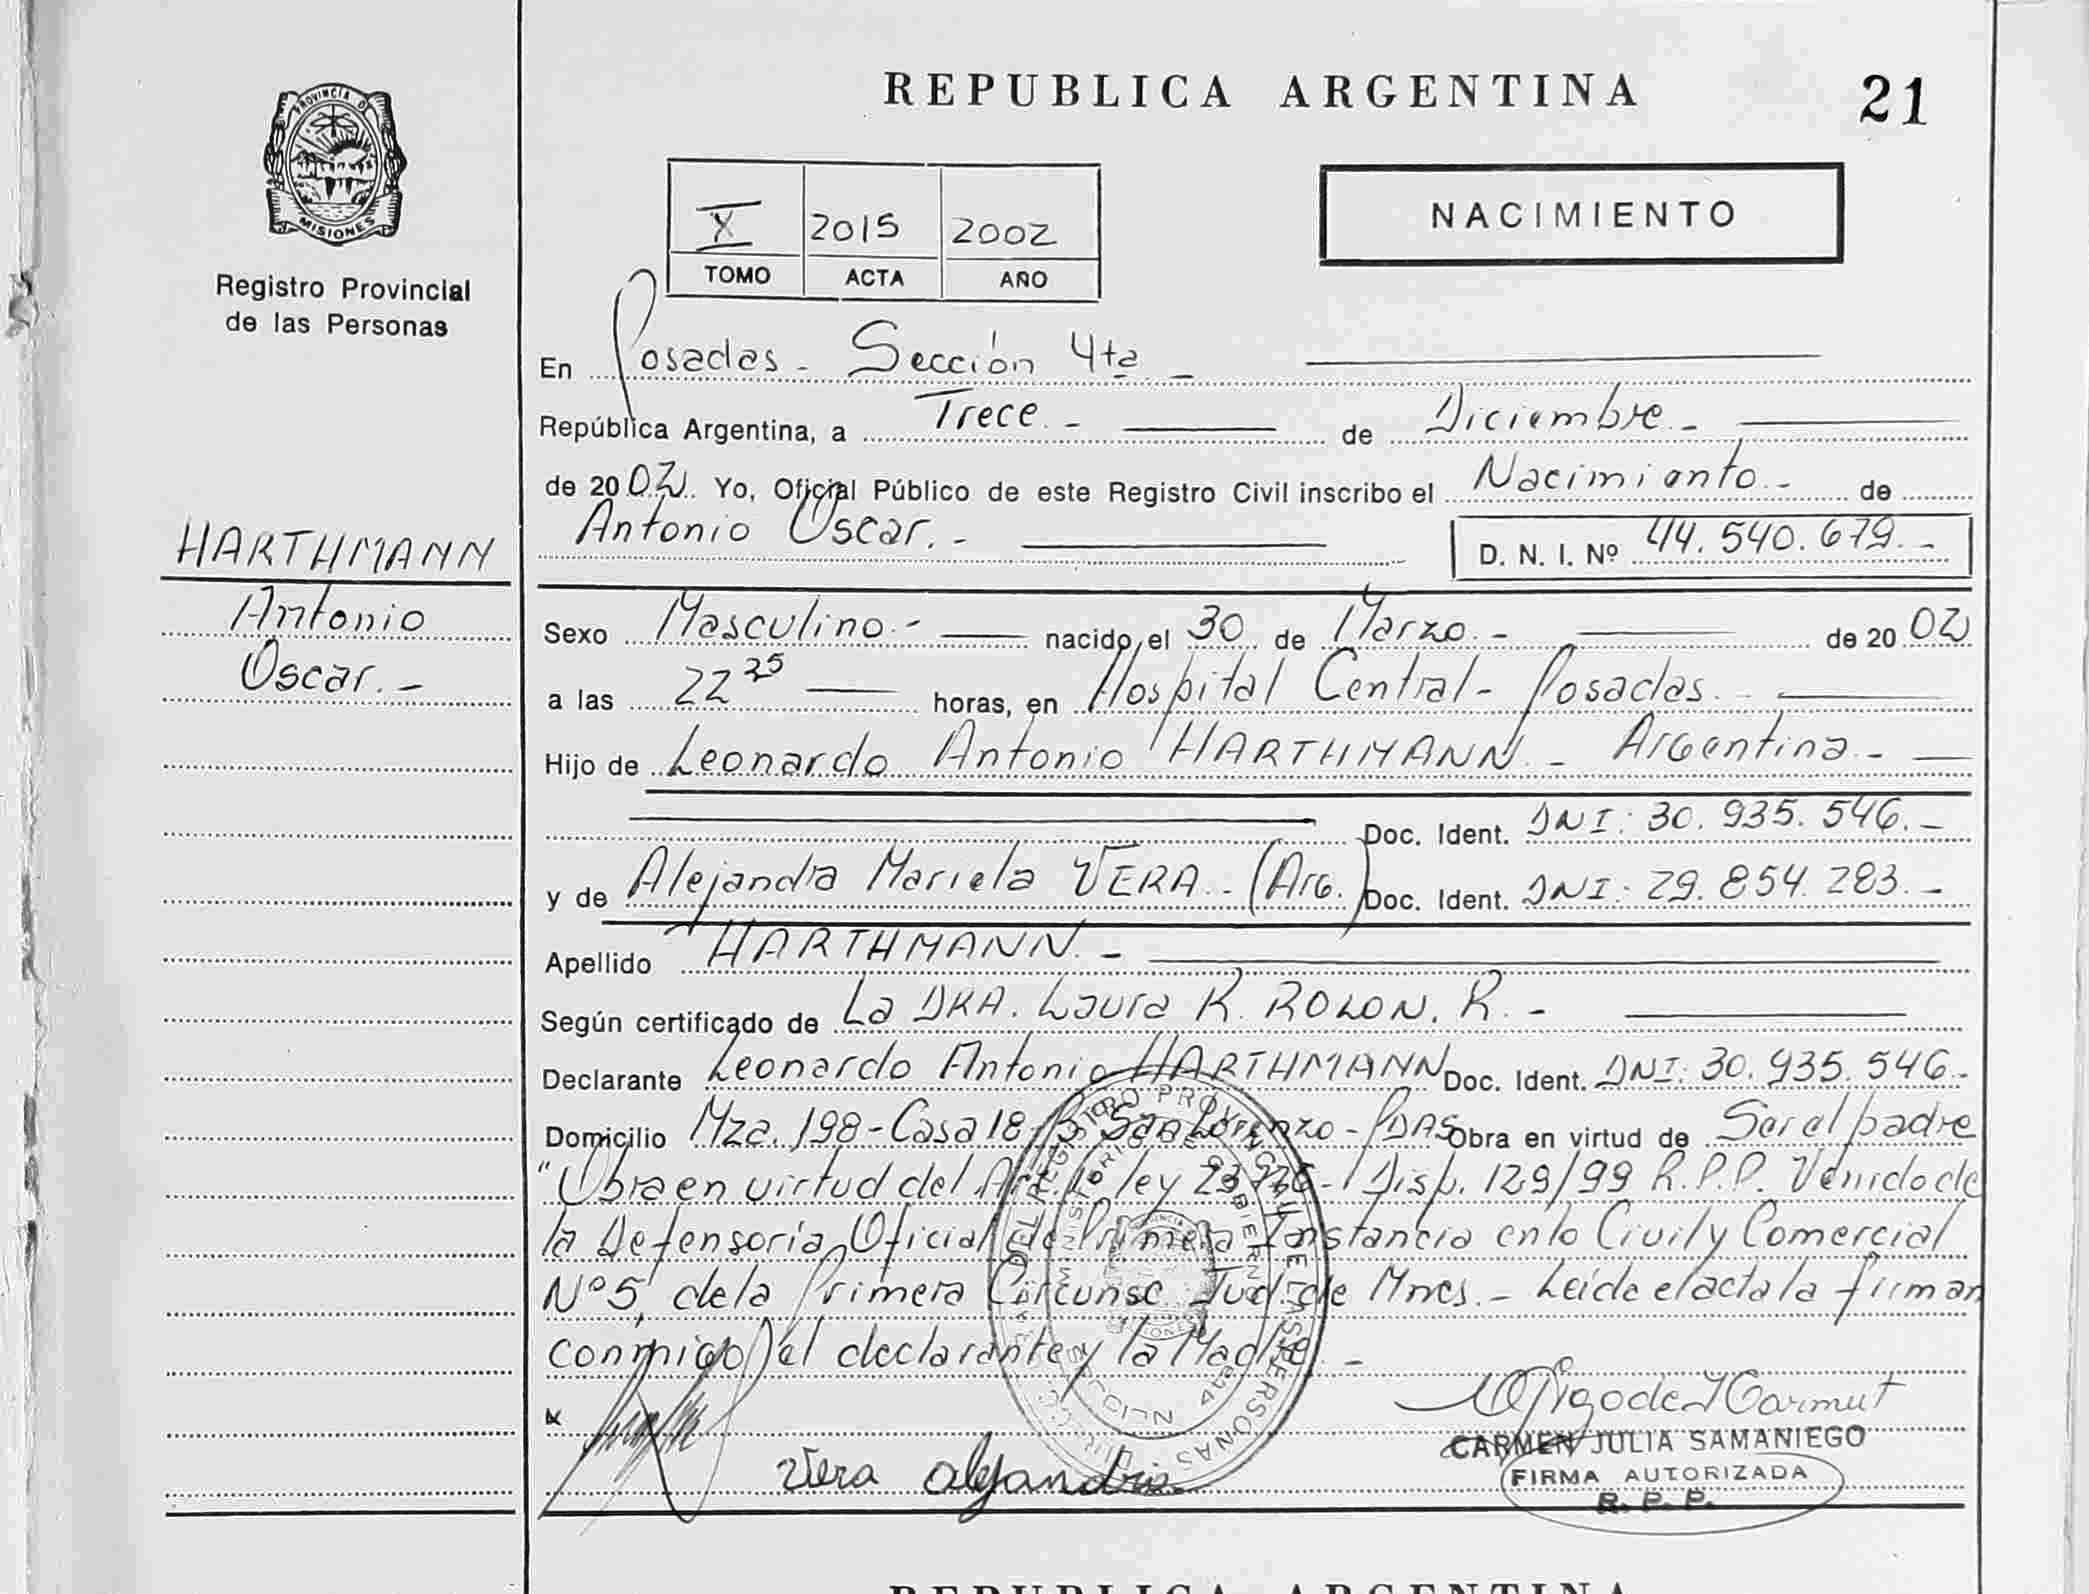 REPUBLICA ARGENTINA
21
PROVINCIA DE
MISIONES
Registro Provincial
de las Personas
X 2015 2002
TOMO ACTA AÑO
NACIMIENTO
En Posadas - Sección 4ta -
República Argentina, a Trece. - de Diciembre. -
de 2002. Yo, Oficial Público de este Registro Civil inscribo el Nacimiento. - de
Antonio Oscar. - D. N. I. Nº 44.540.679. -
HARTHMANN
Antonio
Oscar. -
Sexo Masculino. - nacido el 30 de Marzo. - de 2002
a las 22 25 horas, en Hospital Central - Posadas. -
Hijo de Leonardo Antonio HARTHMANN - Argentina. -
Doc. Ident. DNI: 30.935.546. -
y de Alejandra Mariela VERA. (Arg.) Doc. Ident. DNI: 29.854.283. -
Apellido HARTHMANN. -
Según certificado de La DRA. Laura R. ROLON. R. -
Declarante Leonardo Antonio HARTHMANN Doc. Ident. DNI: 30.935.546. -
Domicilio Mza. 198 - Casa 18 - B San Lorenzo - PDAS Obra en virtud de Ser el padre
"Obra en virtud del Art. 1º ley - Disp. 129/99 R.P.P. Venido de
la Defensoría Oficial de Primera Instancia en lo Civil y Comercial
Nº 5, de la Primera Circunsc. Jud. de Mnes. - Leída el acta la firman
conmigo el declarante y la Madre. -
Vera Alejandra
CARMEN JULIA SAMANIEGO
FIRMA AUTORIZADA
R. P. P.
REPUBLICA ARGENTINA